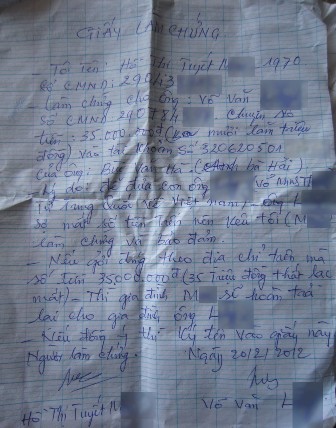 GIẤY LÀM CHỨNG
- Tôi Tên: Hồ Thị Tuyết M 1970
Số CMND: 29043
Làm chứng cho ông: Võ Văn
Số CMND: 290784 chuyển số
tiền: 35.000.000đ (Ba mươi lăm triệu
đồng) vào tài khoản số 320620501
của ông: Bùi Văn (Anh bà Hải)
- Lý do: để đưa con ông Võ Minh Th
Từ Trung Quốc về Việt Nam, ông L
sợ mất số tiền trên nên kêu tôi (M
làm chứng và bảo đảm.
- Nếu gởi đúng theo địa chỉ trên mà
số tiền 35.000.000đ (35 Triệu đồng thất lạc
mất) - Thì gia đình M sẽ hoàn trả
lại cho gia đình ông L
- Nếu đồng ý thì ký tên vào giấy này
Người làm chứng. Ngày 20/2/2012
Hồ Thị Tuyết M Võ Văn L